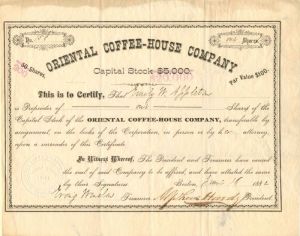 No.
Shares
ORIENTAL COFFEE-HOUSE COMPANY
50 Shares.
Capital Stock $5,000.
Par Value $100.
This is to Certify, That Emily W. Appleton
is Proprietor of one Shares of the
Capital Stock of the ORIENTAL COFFEE-HOUSE COMPANY, transferable by
assignment, in the books of the Corporation, in person or by attorney,
upon a surrender of this Certificate.
In Witness Whereof, The President and Treasurer have caused
the seal of said Company to be affixed, and have attached the same
by their Signatures. Boston,
Treasurer President